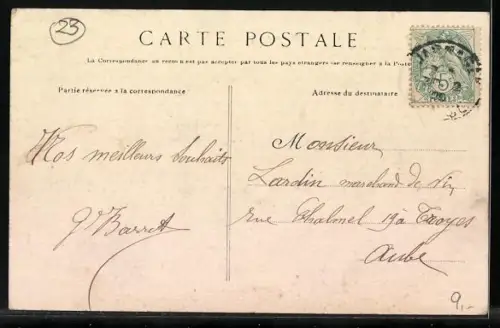 23
CARTE POSTALE
La Correspondance au recto n'est pas acceptée par tous les pays étrangers (se renseigner à la Poste
Partie réservée à la correspondance
Adresse du destinataire
Nos meilleurs Souhaits
Barret
Monsieur
Lardin marchand de Vin
rue Thalmel 19 à Troyes
Aube
9,-